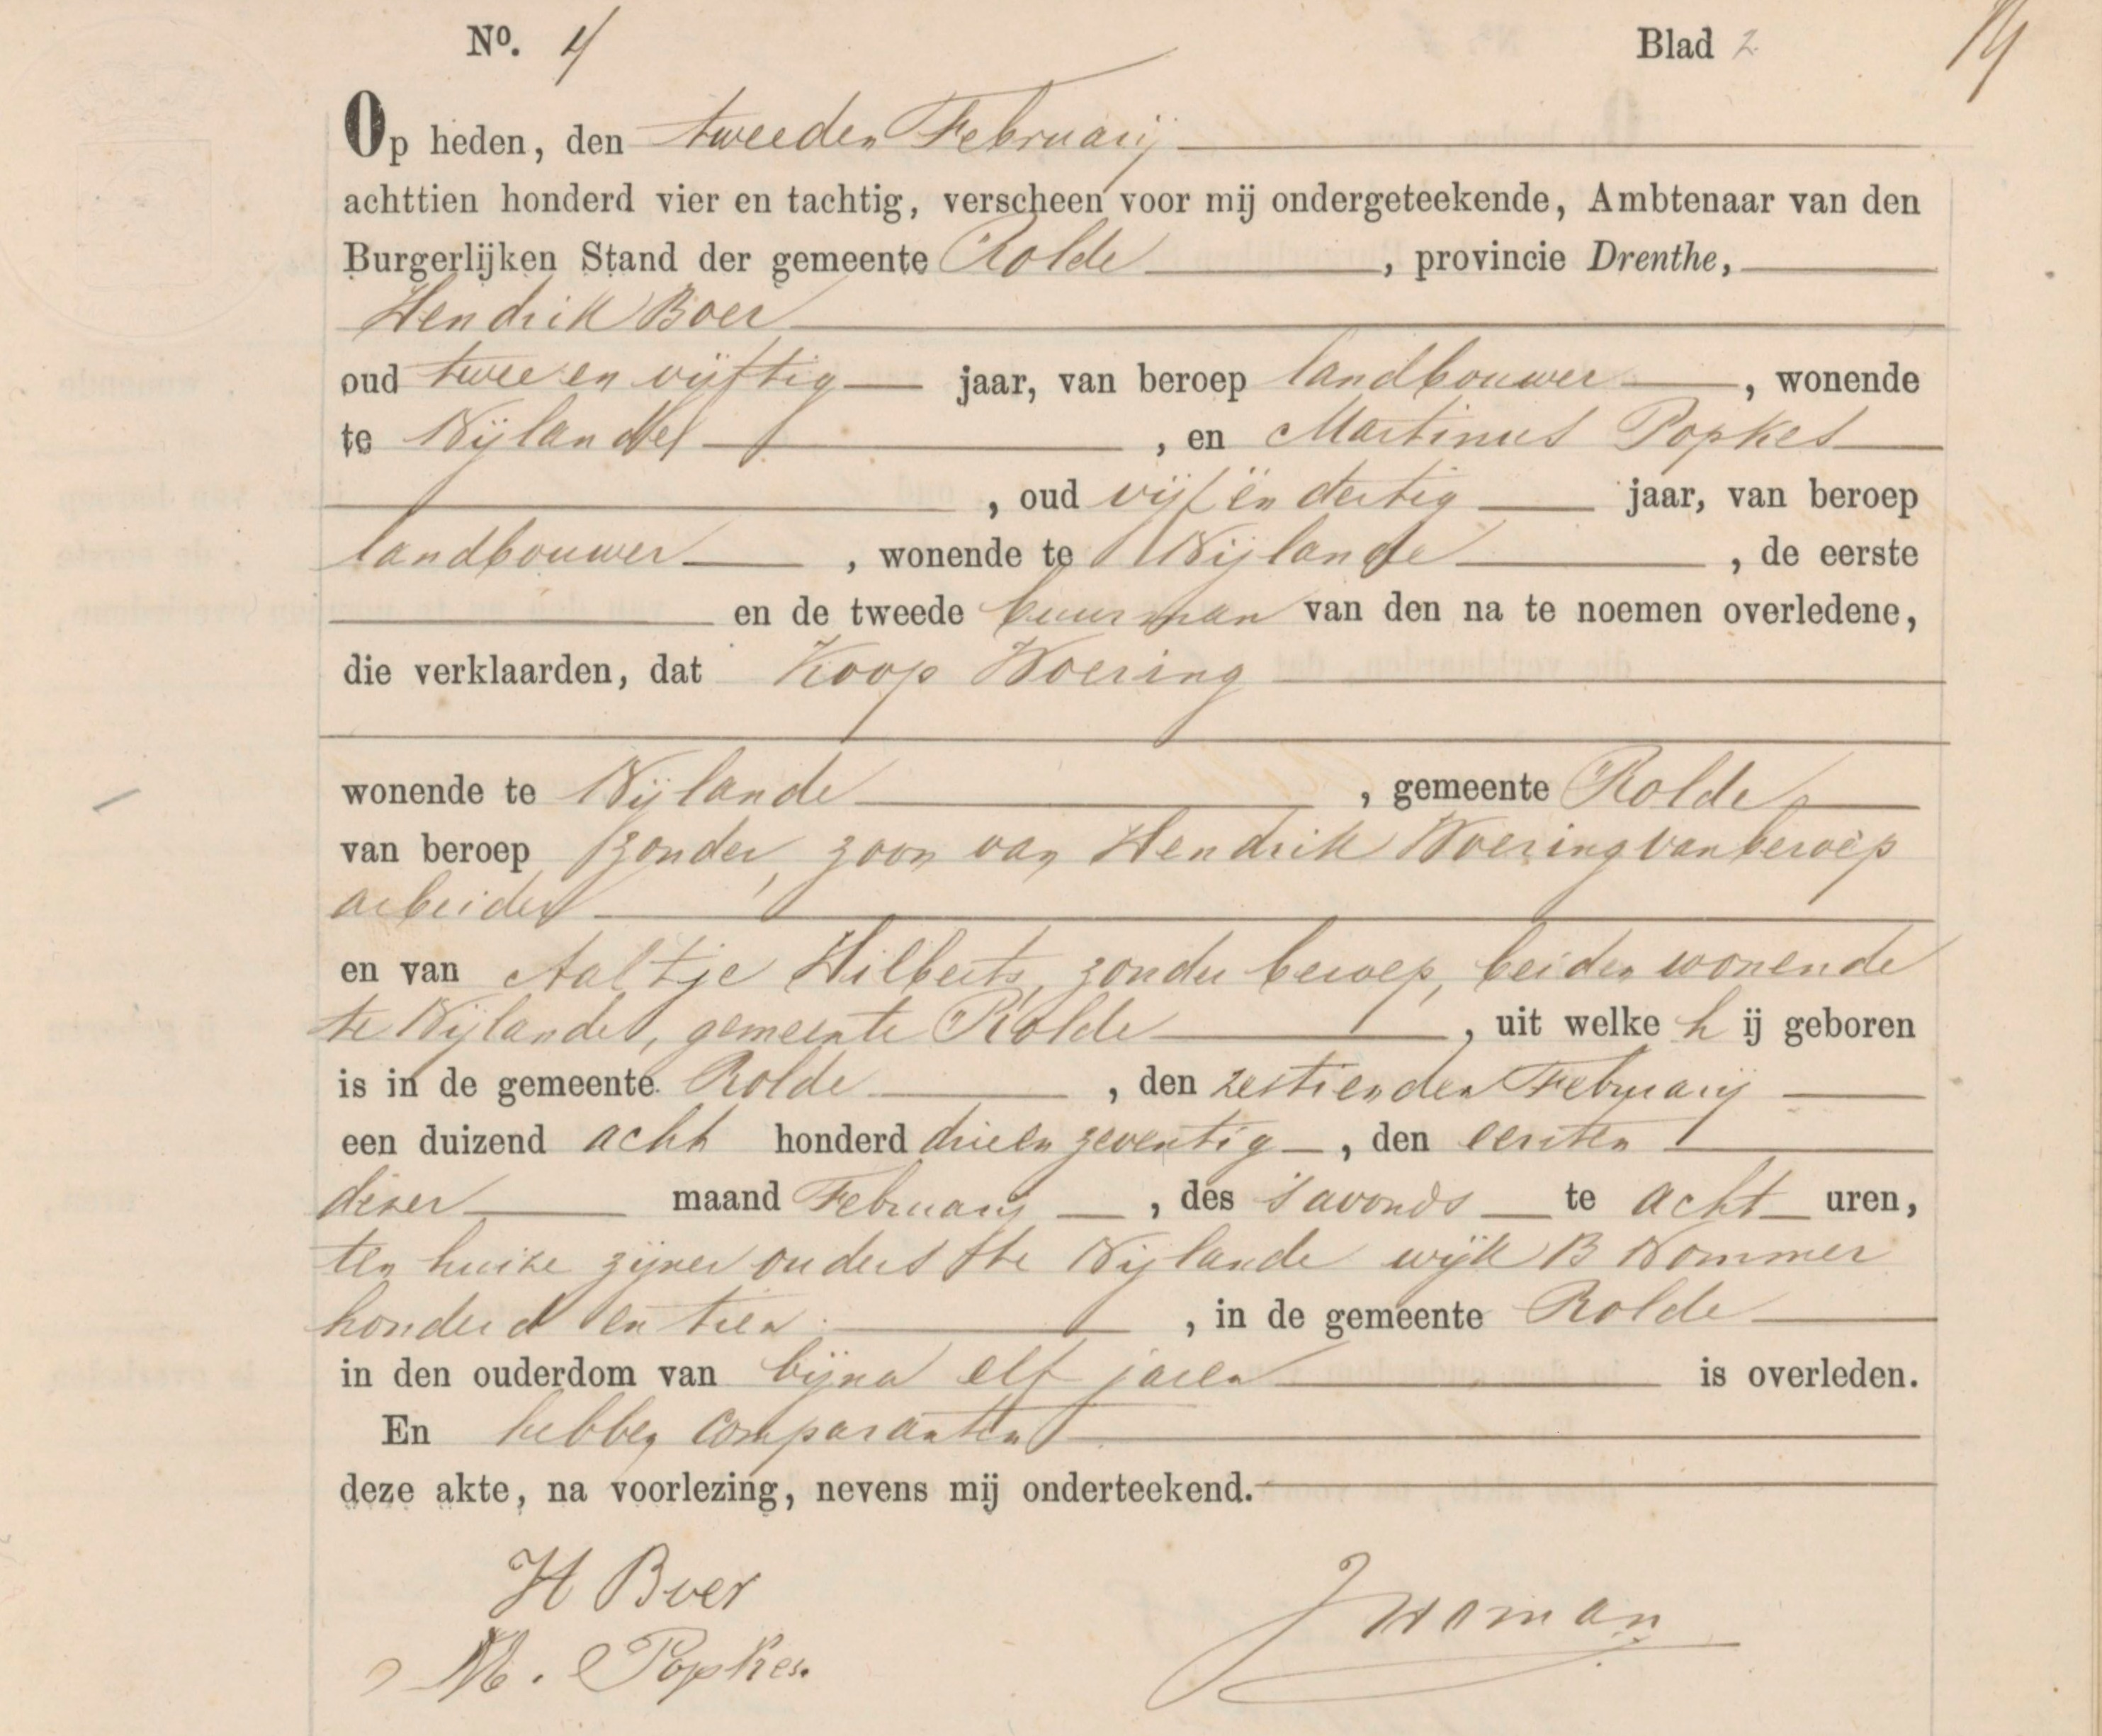 Nº. 4 Blad 2 14
Op heden, den tweeden Februarij
achttien honderd vier en tachtig, verscheen voor mij ondergeteekende, Ambtenaar van den
Burgerlijken Stand der gemeente Rolde, provincie Drenthe,
Hendrik Boer
oud twee en vijftig jaar, van beroep landbouwer, wonende
te Nijlande, en Martinus Popkes
, oud vijf en dertig jaar, van beroep
landbouwer, wonende te Nijlande, de eerste
en de tweede buurman van den na te noemen overledene,
die verklaarden, dat Koop Woering
wonende te Nijlande, gemeente Rolde
van beroep zonder, zoon van Hendrik Woering van beroep
arbeider
en van Aaltje Hilberts, zonder beroep, beiden wonende
te Nijlande, gemeente Rolde, uit welke hij geboren
is in de gemeente Rolde, den zestienden Februarij
een duizend acht honderd drie en zeventig, den eersten
dezer maand Februarij, des 's avonds te acht uren,
ten huize zijner ouders te Nijlande wijk B Nommer
honderd en tien, in de gemeente Rolde
in den ouderdom van bijna elf jaren is overleden.
En hebben comparanten
deze akte, na voorlezing, nevens mij onderteekend.
H Boer
M. Popkes.